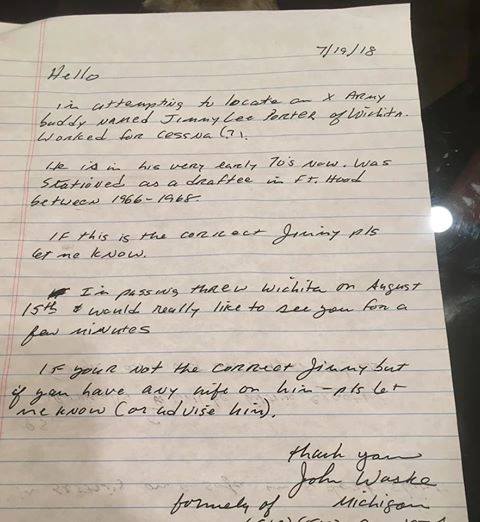 7/19/18
Hello
I'm attempting to locate an X Army
buddy named Jimmy Lee Porter of Wichita.
Worked for Cessna (?).
He is in his very early 70's now. Was
stationed as a draftee in Ft. Hood
between 1966-1968.
If this is the correct Jimmy pls
let me know.
I'm passing threw Wichita on August
15th & would really like to see you for a
few minutes
If your not the correct Jimmy but
if you have any info on him - pls let
me know (or advise him).
thank you
John Waske
formely of Michigan